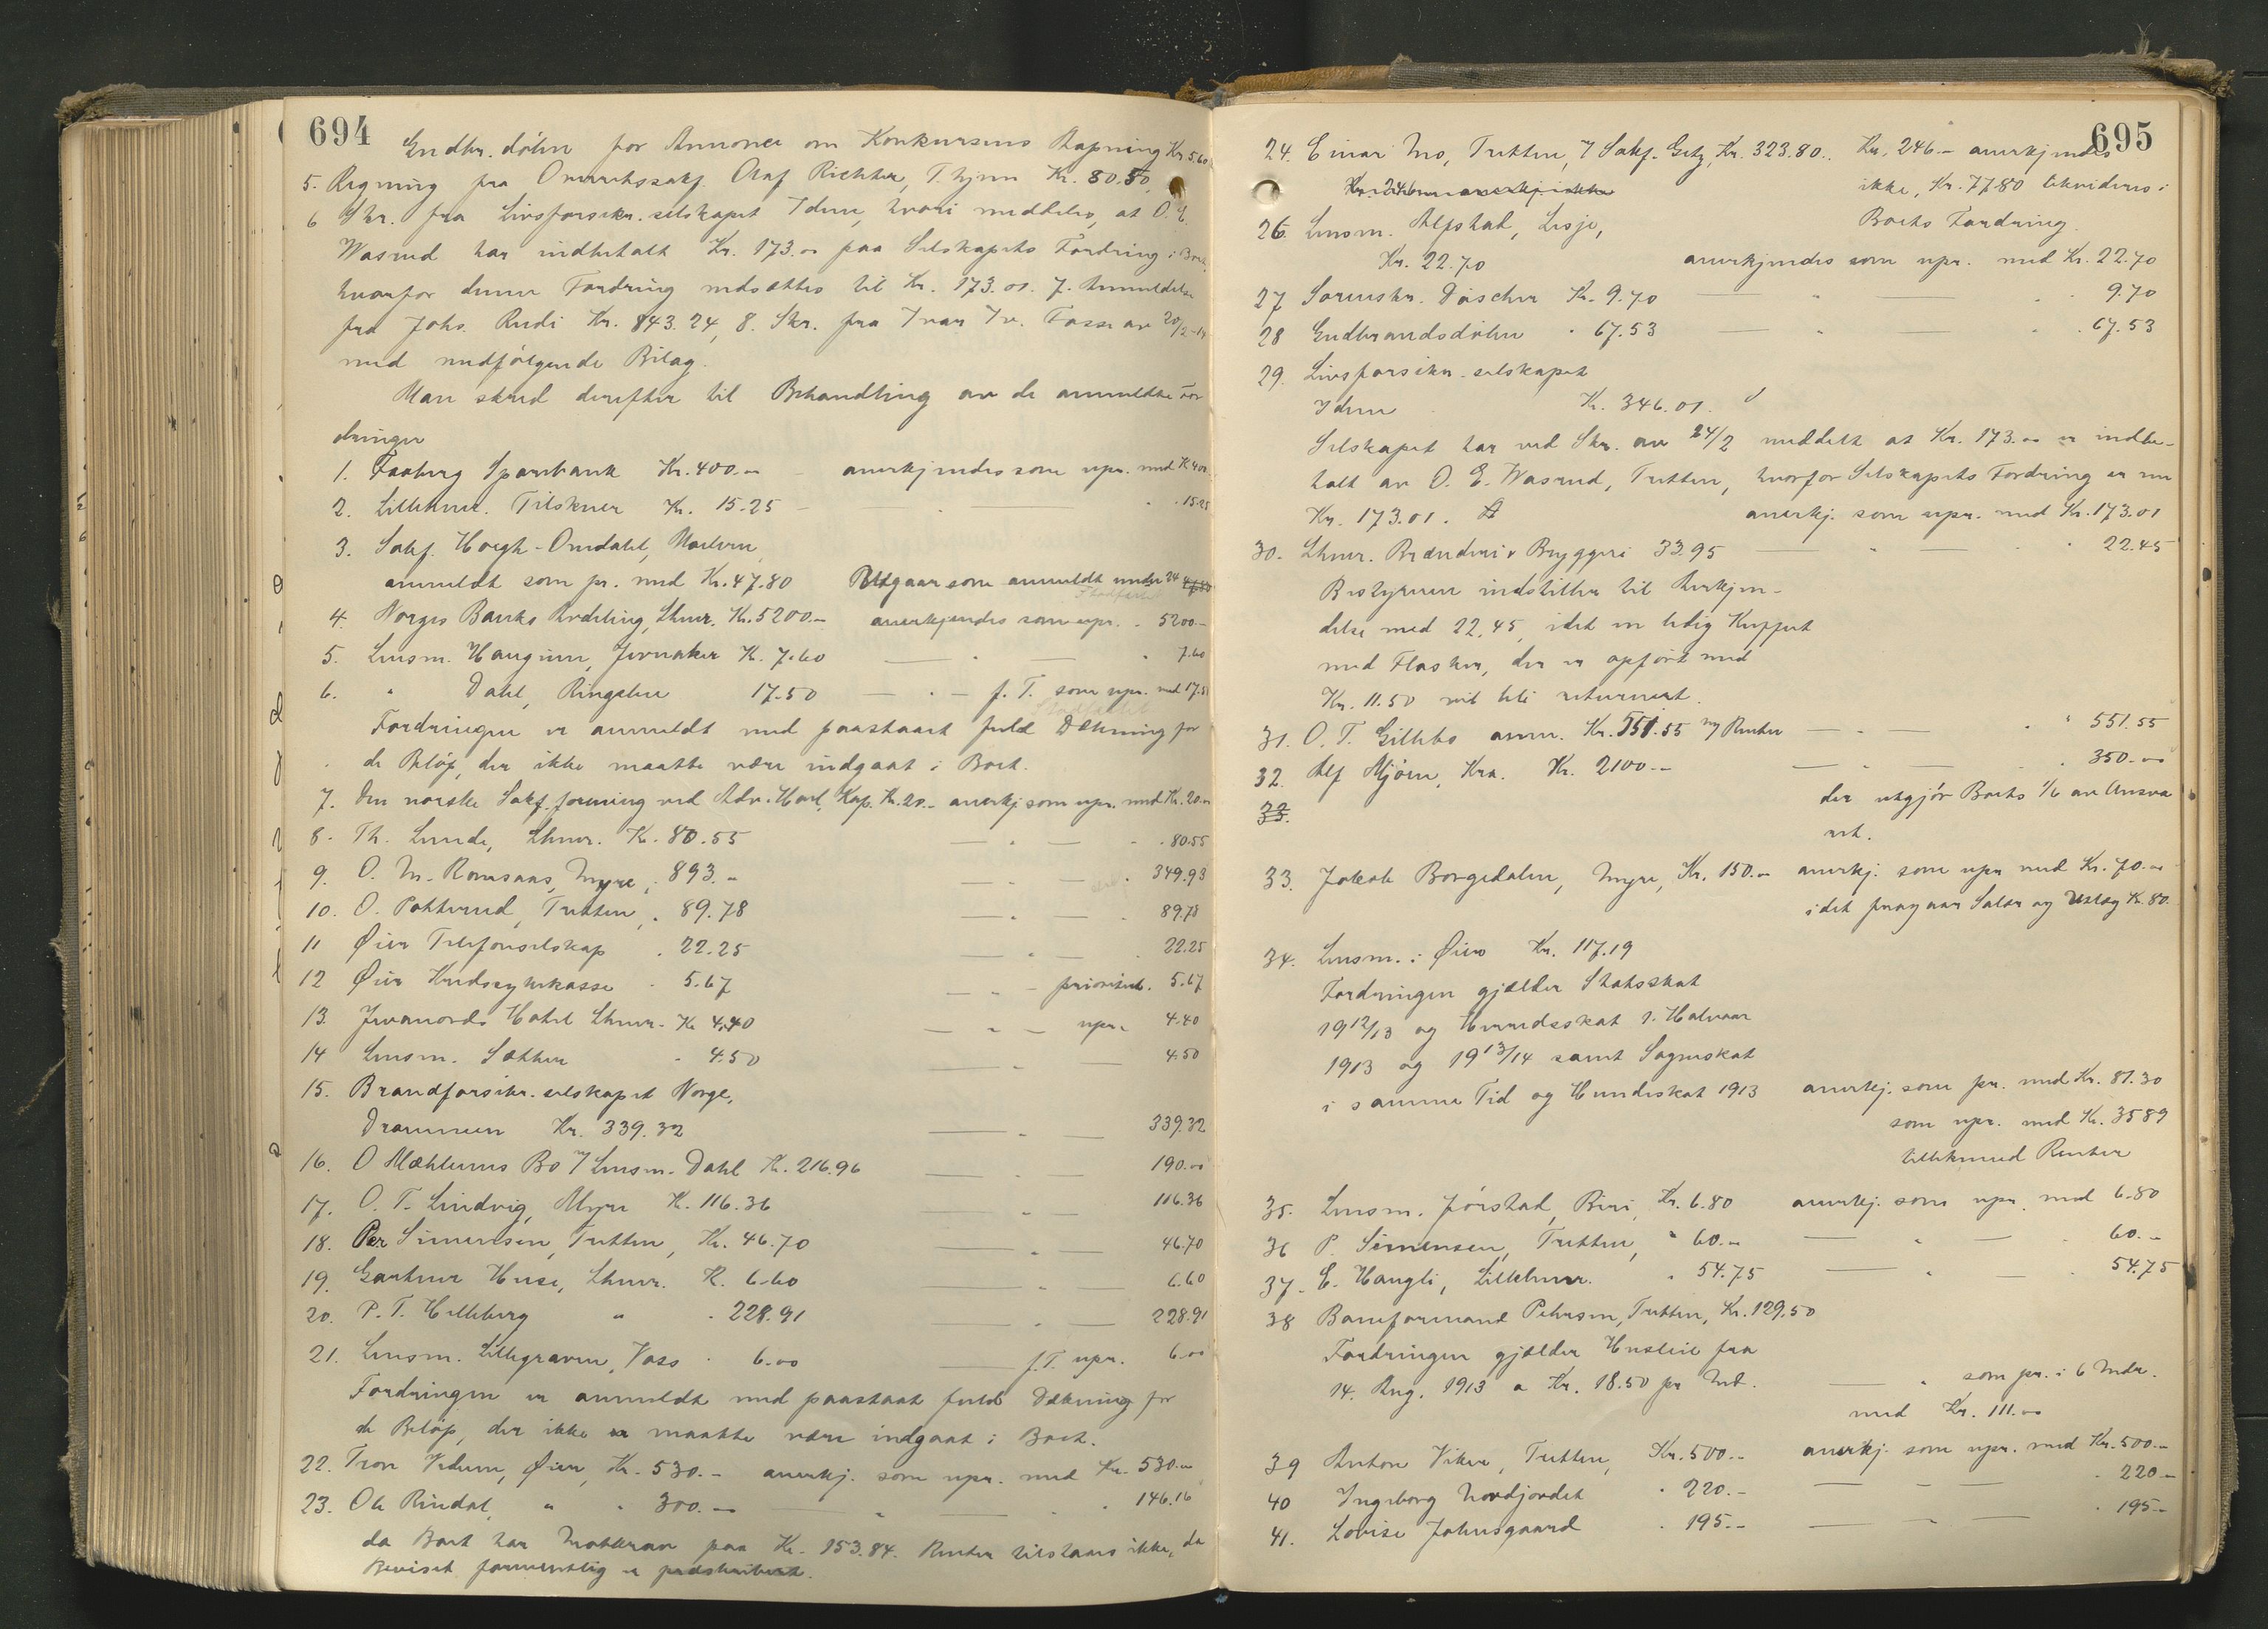 694
Gudbr. dølen for Annonce om Konkursens Aapning Kr 5.60
5. Regning fra Overretssakf. Olaf Richter, T.hjem Kr. 80.50,
6 Skr. fra Livsforsikr. selskapet Idun, hvori meddeles, at O. E.
Wasrud har indbetalt Kr. 173.00 paa Selskapets Fordring i Boet,
hvorfor denne Fordring nedsættes til Kr. 173.01. 7. Anmeldelse
fra Johs. Rudi Kr. 843.24, 8. Skr. fra Ivar Iv. av 20/2-14
med medfølgende Bilag.
Man skred derefter til Behandling av de anmeldte For
dringer
1. Faaberg Sparebank Kr. 400.00 anerkjendes som upr. med K 400.
2. Lillehm. Tilskuer Kr. 15.25 — " — " . 15.25
3. Sakf. Høegh-Omdahl,
anmeldt som pr. med Kr. 47.80 Utgaar som anmeldt under 24 47.80
4. Norges Banks Avdeling, Lhmr. Kr. 5200.— anerkjendes som upr. . 5200.—
5. Lensm. Haugerun, Jevnaker K. 7.60 — " — " 7.60
6. " Dahl, Ringebu 17.50 — " — f. T. som upr. med 17.50
Stadfæstet
Fordringen er anmeldt med paastaat fuld Dækning for
de Beløp, der ikke maatte være indgaat i Boet.
7. Den norske Sakf.forening ved Adv. Kr. 20.— anerkj som upr. med Kr. 20.00
8. Th. Lunde, Lhmr. K. 80.55 — " — . 80.55
9. O. M. Romsaas, Myre, " 893.— — " — . 349.93
10. O. Potterud, Tretten, . 89.78 — " — . 89.78
11 Øier Telefonselskap . 22.25 — " — 22.25
12 Øier Kredssykekasse . 5.67 — " — prioritert. 5.67
13. Jevanords Hotel Lhmr. K 4.40 — " — upr. 4.40
14 Lensm. Sæther . 4.50 — " — 4.50
15. Brandforsikr. selskapet Norge,
Drammen Kr. 339.32 — " — 339.32
16. O Mæhlums Bo v/ Lensm. Dahl K. 216.96 — " — 190.00
17. O. T. Lindvig, Myre K. 116.36 — " — 116.36
18. Per Simensen, Tretten, Kr. 46.70 — " — 46.70
19. Gartner Huse, Lhmr. K. 6.60 — " — 6.60
20. P. T. Hilleberg " . 228.91 — " — 228.91
21. Lensm. Lillegraven, Voss . 6.00 — f.T. upr. 6.00
Fordringen er anmeldt med paastaat fuld Dækning for
de Beløp, der ikke er maatte være indgaat i Boet.
22. Tron Vedum, Øier, Kr. 530.— anerkj. som upr. med Kr. 530.00
23. Ole Rindal, " " 300.— — " — . 146.16
da Boet har Motkrav paa Kr. 153.84. Renter tilstaaes ikke, da
Beviset formentlig er præskribert.
695
24. Einar Mo, Tretten, v/ Sakf. Getz, Kr. 323.80. Kr. 246.— anerkjendes
Kr. 246.— anerkj. ikke ikke, Kr. 77.80 likvideres i
Boets Fordring.
26. Lensm. Alfstad, Lesje,
Kr. 22.70 anerkjendes som upr. med Kr. 22.70
27 Sorenskr. Döscher Kr. 9.70 — " — . . 9.70
28 Gudbrandsdølen . 67.53 — " — . . 67.53
29. Livsforsikr.-selskapet
Idun Kr. 346.01.
Selskapet har ved Skr. av 24/2 meddelt at Kr. 173.00 er indbe-
talt av O. E. Wasrud, Tretten, hvorfor Selskapets Fordring er nu
Kr. 173.01. anerkj. som upr. med Kr. 173.01
30. Lhmr. Brænderi & Bryggeri 33.95 — " — . " 22.45
Bestyreren indstiller til Anerkjen-
delse med 22.45, idet en ledig Kuffert
med Flasker, der er opført med
Kr. 11.50 vil bli returnert.
31. O. T. Gillebo anm. Kr. 551.55 m/ Renter — " — . " 551.55
32. Alf Mjøen, Kra. Kr. 2100.— — " — . . 350.00
33. der utgjør Boets 1/6 av Ansva
ret.
33. Jakob Borgedalen, Myre, Kr. 150.00 anerkj. som upr med Kr. 70.00
idet fragaar Salær og Utlæg K. 80.
34. Lensm. i Øier Kr. 117.19
Fordringen gjælder Statsskat
1912/13 og Herredsskat 1. Halvaar
1913 og 1913/14 samt Sogneskat
i samme Tid og Hundeskat 1913 anerkj. som pr. med Kr. 81.30
som upr. med Kr. 35.89
tillikemed Renter
35. Lensm. Jørstad, Biri, Kr. 6.80 anerkj. som upr. med 6.80
36 P. Simensen, Tretten, " 60.00 — " — . 60.—
37. E. Haugli, Lillehmr. . 54.75 — " — . 54.75
38 Baneformand Petersen, Tretten, Kr. 129.50
Fordringen gjælder Husleie fra
14. Aug. 1913 a Kr. 18.50 pr Md. — " som pr. i 6 Mdr.
med Kr. 111.00
39 Anton Viken, Tretten, Kr. 500.— anerkj. som upr. med Kr. 500.—
40 Ingeborg Nordjordet . 220.— — " — . 220.—
41. Lovise Johnsgaard . 195.— — " — . 195.—